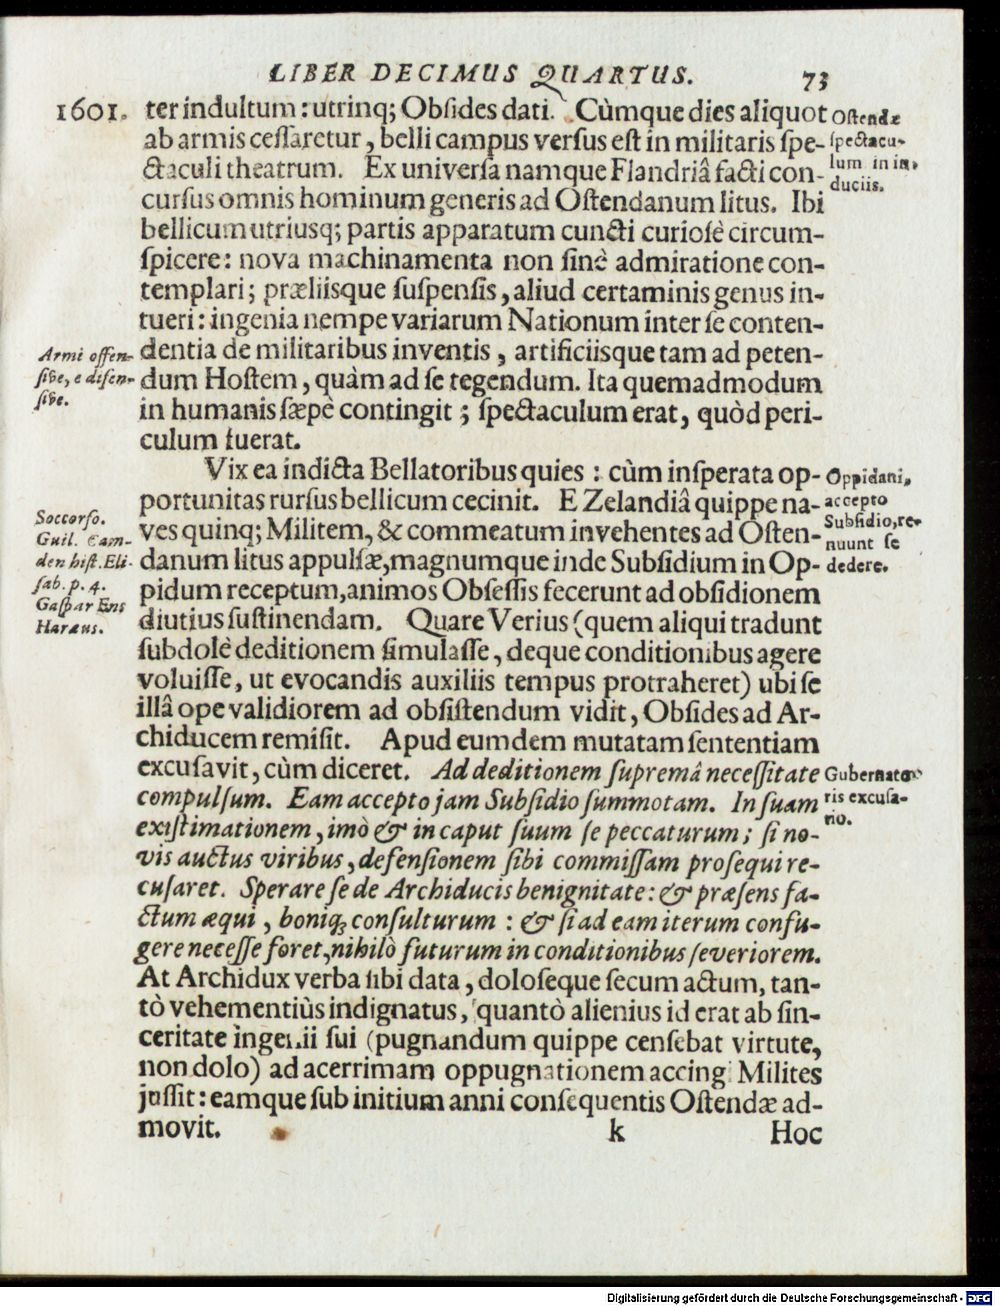 LIBER DECIMUS QUARTUS. 73
1601. ter indultum: utrinq; Obſides dati. Cùmque dies aliquot
ab armis ceſſaretur, belli campus verſus eſt in militaris ſpe-
ctaculi theatrum. Ex universâ namque Flandriâ facti con-
curſus omnis hominum generis ad Oſtendanum litus. Ibi
bellicum utriusq; partis apparatum cuncti curioſè circum-
ſpicere: nova machinamenta non ſine admiratione con-
templari; præliisque ſuſpenſis, aliud certaminis genus in-
tueri: ingenia nempe variarum Nationum inter ſe conten-
dentia de militaribus inventis, artificiisque tam ad peten-
dum Hoſtem, quàm ad ſe tegendum. Ita quemadmodum
in humanis ſæpè contingit; ſpectaculum erat, quòd peri-
culum fuerat.
Oſtendæ
ſpectacu-
lum in in-
duciis.
Armi offen-
ſive, e difen-
ſive.
Vix ea indicta Bellatoribus quies: cùm inſperata op-
portunitas rurſus bellicum cecinit. E Zelandiâ quippe na-
ves quinq; Militem, & commeatum invehentes ad Oſten-
danum litus appulſæ, magnumque inde Subſidium in Op-
pidum receptum, animos Obſeſſis fecerunt ad obſidionem
diutius ſuſtinendam. Quare Verius (quem aliqui tradunt
ſubdolè deditionem ſimulaſſe, deque conditionibus agere
voluiſſe, ut evocandis auxiliis tempus protraheret) ubi ſe
illâ ope validiorem ad obſiſtendum vidit, Obſides ad Ar-
chiducem remiſit. Apud eumdem mutatam ſententiam
excuſavit, cùm diceret. Ad deditionem ſupremâ neceſſitate
compulſum. Eam accepto jam Subſidio ſummotam. In ſuam
exiſtimationem, imò & in caput ſuum ſe peccaturum; ſi no-
vis auctus viribus, defenſionem ſibi commiſſam proſequi re-
cuſaret. Sperare ſe de Archiducis benignitate: & præſens fa-
ctum æqui, boniq; conſulturum: & ſi ad eam iterum confu-
gere neceſſe foret, nihilò futurum in conditionibus ſeveriorem.
At Archidux verba ſibi data, doloſeque ſecum actum, tan-
tò vehementiùs indignatus, quantò alienius id erat ab ſin-
ceritate ingenii ſui (pugnandum quippe cenſebat virtute,
non dolo) ad acerrimam oppugnationem accingi Milites
juſſit: eamque ſub initium anni conſequentis Oſtendæ ad-
movit.
Oppidani,
accepto
Subſidio, re-
nuunt ſe
dedere.
Soccorſo.
Guil. Cam-
den hiſt. Eli-
ſab. p. 4.
Gaſpar Ens
Haræus.
Gubernato-
ris excuſa-
tio.
k Hoc
Digitalisierung gefördert durch die Deutsche Forschungsgemeinschaft - DFG